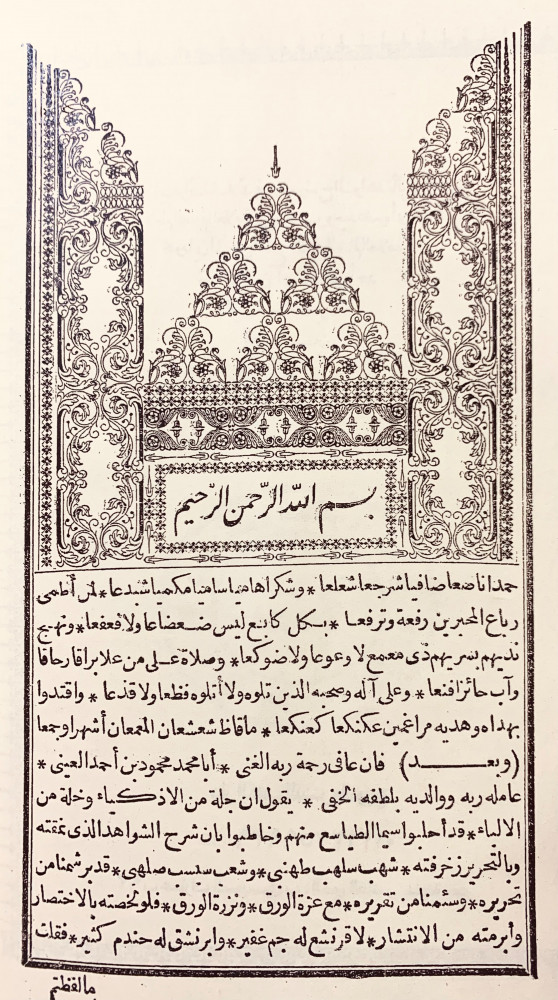 بسم الله الرحمن الرحيم
حمدا ناصعا ضافيا شرجعا شعلعا * وشكرا هاميا ساميا مكميا شبدعا * لمن أطمى
رباع المحبرين رفعة وترفعا * بكل كابع ليس ضعضاعا ولا فعفعا * ونهج
نديهم بسريهم ذى معمع لا وعوعا ولا ضوكعا * وصلاة على من علا براقا رحاقا
وآب حائزا فنعا * وعلى آله وصحبه الذين تلوه ولا أتلوه فظعا ولا قذعا * واقتدوا
بهداه وهديه مراغمين عكنكعا كعنكعا * ماقاظ شعشعان المعمعان أشهرا وجمعا
(وبعد) فان عافى رحمة ربه الغنى * أبا محمد محمود بن أحمد العينى *
عامله ربه ووالديه بلطفه الخفى * يقول ان جلة من الاذكياء وخلة من
الالباء * قد أحلبوا سيما الطباسع منهم وخاطبوا بان شرح الشواهد الذى نمقته
وبالتحرير زخرفته * شهب سلهب طهنبى * وشعب سبسب صلهبى * قد برشمنا من
تحريره * وسئمنا من تقريره * مع عزة الورق * ونزرة الورق * فلو لخصته بالاختصار
وأبرمته من الانتشار * لاقرنشع له جم غفير * وابرنشق له حندم كثير * فقلت
مالفظتم